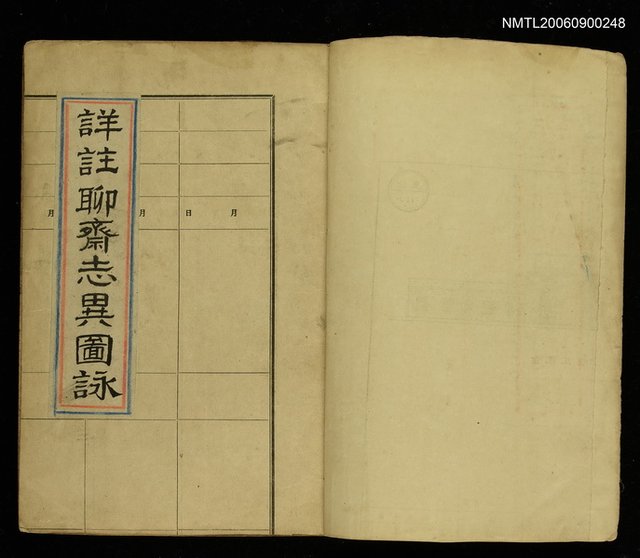 NMTL20060900248
詳註聊齋志異圖詠
月 日 月 月